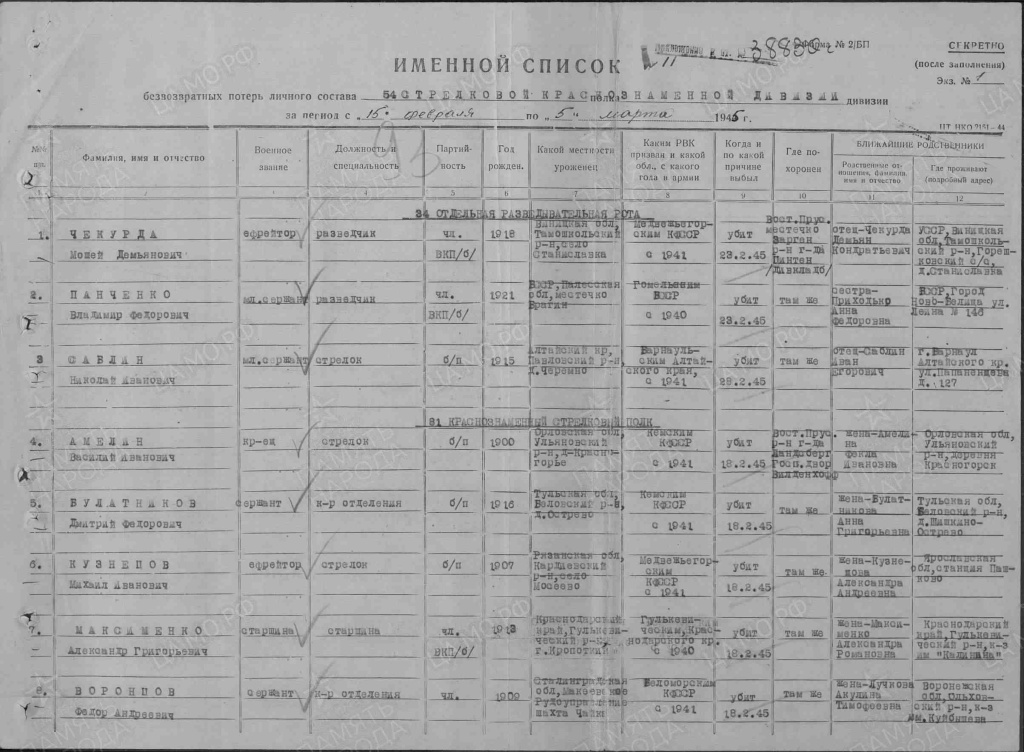 38830с
Форма № 2/БП
СЕКРЕТНО
(после заполнения)
Экз. № 1
ИМЕННОЙ СПИСОК
безвозвратных потерь личного состава 54 СТРЕЛКОВОЙ КРАСНОЗНАМЕННОЙ ДИВИЗИИ дивизии
за период с „15" февраля по „5" марта 1945 г.
Фамилия, имя и отчество
Военное звание
Должность и специальность
Партийность
Год рожден.
Какой местности уроженец
Каким РВК призван и какой обл., с какого года в армии
Когда и по какой причине выбыл
Где похоронен
БЛИЖАЙШИЕ РОДСТВЕННИКИ
Родственные отношения, фамилия, имя и отчество
Где проживают (подробный адрес)
4 5 6 7 8 9 10 11 12
34 ОТДЕЛЬНАЯ РАЗВЕДЫВАТЕЛЬНАЯ РОТА
1. ЧЕКУРДА
Мошей Демьянович
ефрейтор
разведчик
чл.
ВКП/б/
1918
Виницкая обл,
Тамошкольский
р-н, село
Станиславка
Медвежьегор-
ским КФССР
с 1941
убит
23.02.45
Вост.Прус.
местечко
Варган
р-н г-да
Цинтен
отец-Чекурда
Демьян
Кондратьевич
УССР, Виницкая
обл, Тамошколь-
ский р-н, Гореш-
ковский с/с,
д.Станиславка
2. ПАНЧЕНКО
Владимир Федорович
мл.сержант
разведчик
чл.
ВКП/б/
1921
БССР, Полесская
обл, местечко
Брагин
Гомельским
БССР
с 1940
убит
23.02.45
там же
сестра-
Приходько
Анна
Федоровна
БССР, Город
Ново-Белица ул.
Леина № 146
3 САБЛАН
Николай Иванович
мл.сержант
стрелок
б/п
1915
Алтайский кр,
Павловский р-н
д.Черемно
Барнауль-
ским Алтай-
ского края,
с 1941
убит
28.2.45
там же
отец-Саблин
Иван
Егорович
г.Барнаул
Алтайского кр.
ул.Папаненцева
д. 127
81 КРАСНОЗНАМЕННЫЙ СТРЕЛКОВЫЙ ПОЛК
4. АМЕЛАН
Василий Иванович
кр-ец
стрелок
б/п
1900
Орловская обл,
Ульяновский
р-н, д-Красно-
горье
Кемским
КФССР
с 1941
убит
18.2.45
Вост.Прус.
р-н г-да
Ландсберг
Госп.двор
Вилденхофф
жена-Амели-
на
Фекла
Ивановна
Орловская обл,
Ульяновский
р-н, деревня
Красногорск
5. БУЛАТНИКОВ
Дмитрий Федорович
сержант
к-р отделения
б/п
1916
Тульская обл,
Беловский р-н,
д.Острево
Кемским
КФССР
с 1941
убит
18.2.45
там же
жена-Булат-
никова
Анна
Григорьевна
Тульская обл,
Беловский р-н,
д.Шашкино-
Острево
6. КУЗНЕЦОВ
Михаил Иванович
ефрейтор
стрелок
б/п
1907
Рязанская обл,
Кардаевский
р-н, село
Мосеево
Медвежьегор-
ским
КФССР
с 1941
убит
18.2.45
там же
жена-Кузне-
цова
Александра
Андреевна
Ярославская
обл, станция Паш-
ково
7. МАКСИМЕНКО
Александр Григорьевич
старшина
старшина
чл.
ВКП/б/
1913
Краснодарский
край, Гулькеви-
ческий р-н,
г.Кропоткин
Гулькеви-
ческим, Крас-
нодарского кр.
с 1940
убит
18.2.45
там же
жена-Макси-
менко
Александра
Романовна
Краснодарский
край, Гулькеви-
ческий р-н, к-з
им "Калинина"
8. ВОРОНЦОВ
Федор Андреевич
сержант
к-р отделения
чл.
1909
Сталинградская
обл, Макеевское
Рудоуправление
шахта Чайка
Беломорским
КФССР
с 1941
убит
18.2.45
там же
жена-Лучкова
Акулина
Тимофеевна
Воронежская
обл, Ольхов-
ский р-н, к-з
им.Куйбышева